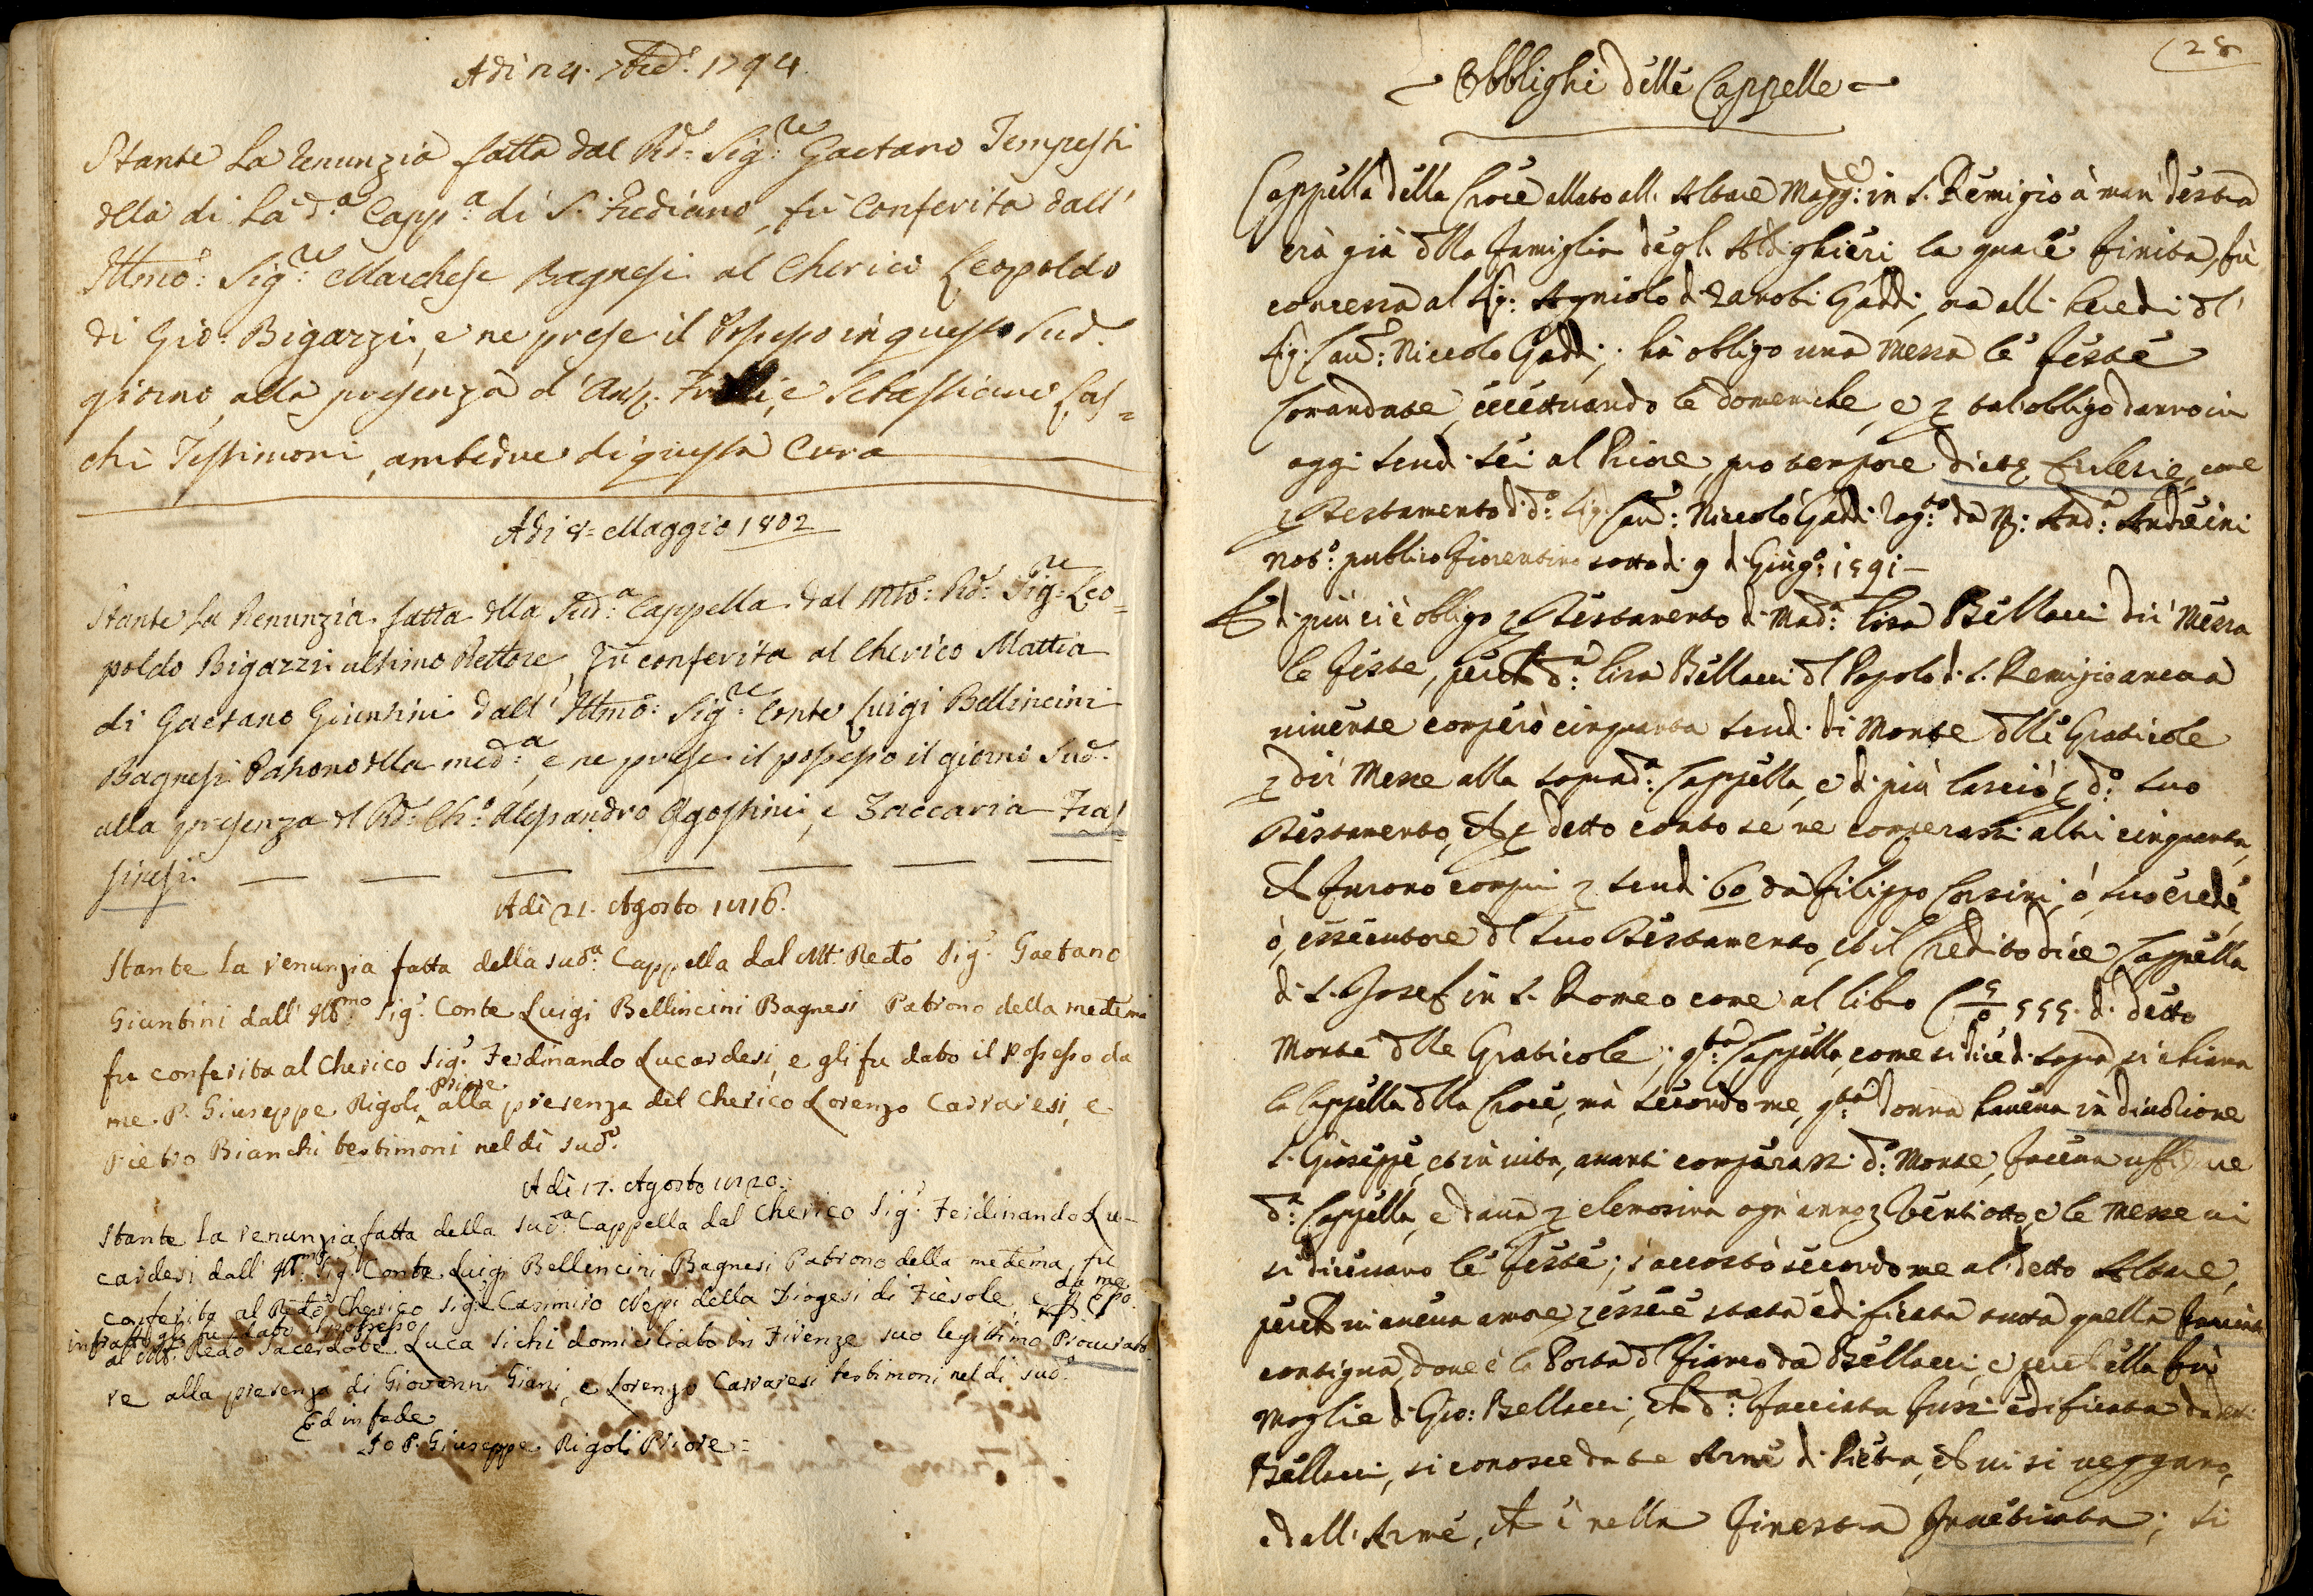 Adì 24. 7bre: 1794.
Stante La renunzia fatta dal Rd: Sig:re Gaetano Tempesti
della di La d:a Capp:a di S. Frediano, fù Conferita dall'
Illmo: Sig:re Marchese Bagnesi al Cherico Leopoldo
di Gio: Bigazzi, e ne prese il Possesso in questo Sud:
giorno, alla presenza d'Ans: e Sebastiano Cas=
chi Testimoni, ambedue di questa Cura
Adì 8= Maggio 1802
Stante La Renunzia fatta della Sud:a Cappella dal Mto: Rd: Sig:re Leo=
poldo Bigazzi ultimo Rettore, Fù conferita al Cherico Mattia
di Gaetano Giuntini dall' Illmo: Sig:re Conte Luigi Bellincini
Bagnesi Patrono della med:a, e ne prese il possesso il giorno Sud:
alla presenza del Rd: Ch:o Alessandro Agostini, e Zaccaria Fras=
sinesi.
Adì 21. Agosto 1816.
Stante La renunzia fatta della sud:a Cappella dal Mt. Redo Sig.r Gaetano
Giuntini dall' Ill:mo Sig.r Conte Luigi Bellincini Bagnesi Patrono della medema
fu conferita al Cherico Sig.r Ferdinando Lucardesi, e gli fu dato il Possesso da
me. P. Giuseppe Rigoli Priore alla presenza del Cherico Lorenzo Carraresi, e
Pietro Bianchi testimoni nel dì sud:o
Adì 17. Agosto 1820.
Stante La renunzia fatta della sud:a Cappella dal Cherico Sig.r Ferdinando Lu-
cardesi dall' Ill:mo Sig.r Conte Luigi Bellincini Bagnesi Patrono della medema, fu
conferita al Redo Cherico Sig.r Casimiro Neppi della Diogesi di Fiesole, e da me
infratto gli fu dato il possesso
al Mt. Redo Sacerdote Luca Sichi domiciliato in Firenze suo legittimo Procurato
re alla presenza di Giovanni Giani, e Lorenzo Carraresi testimoni nel dì sud:o
Ed in fede
Io P. Giuseppe Rigoli Priore=
28
Obblighi delle Cappelle
Cappella della Croce allato all. Altare Magg:e in S. Remigio à man' destra
era già della famiglia degl. Aldighieri la quale finita, fù
concessa al Sig: Agniolo di Zanobi Gaddi, ora all. heredi del
Sig: Cau:r Niccolo Gaddi; hà obligo una Messa le feste
Comandate, eccettuando le domeniche, e p tal obligo danno in
oggi scudi sei al Priore, pro tempore dictę Ecclesię, come
p Testamento di d:o Sig: Cau:r Niccolò Gaddi rog:to da And:a Andreini
Not:o publico fiorentino sotto di 9 di Giug:o 1591—
E di più ci è obligo p Testamento di Mad:a Lisa Bellacci di Messa
le feste, perche d:a Lisa Bellacci del Popolo di S. Remigio ancora
uiuente comperò cinquanta scudi di Monte delle Graticole
p dir Messe alla soprad:a Cappella, e di più lasciò p d:o suo
Testamento, che p detto conto se ne comperassi altri cinquanta,
che furono compri p scudi 60 da Filippo Corsini, ò suo erede,
ò, essecutore del suo Testamento, et il Credito dice Cappella
di S. Josef in S. Romeo come al libro 555. di detto
Monte delle Graticole; q:ta Cappella, come si dice di sopra, si chiama
la Cappella della Croce, mà secondo me, q:ta donna haueua in diuotione
S. Gioseppe, et in uita, auanti comperassi d:o Monte, faceua uffiziare
d:a Cappella, e daua p elemosina ogn' anno uentiotto, e le Messe ui
si diceuano le feste; s'accostò secondo me al detto Altare,
perche ui aueua amore p essere stata edificata tutta quella facciata
contigua, doue è la Porta del fianco da Bellacci, e perche ella fù
Moglie di Gio: Bellacci, che d:a facciata fussi edificata da
Bellacci, si conosce da tre Arme di Pietra, che ui si ueggano,
e dall. Arme, che è nella Finestra Inuetriata; si